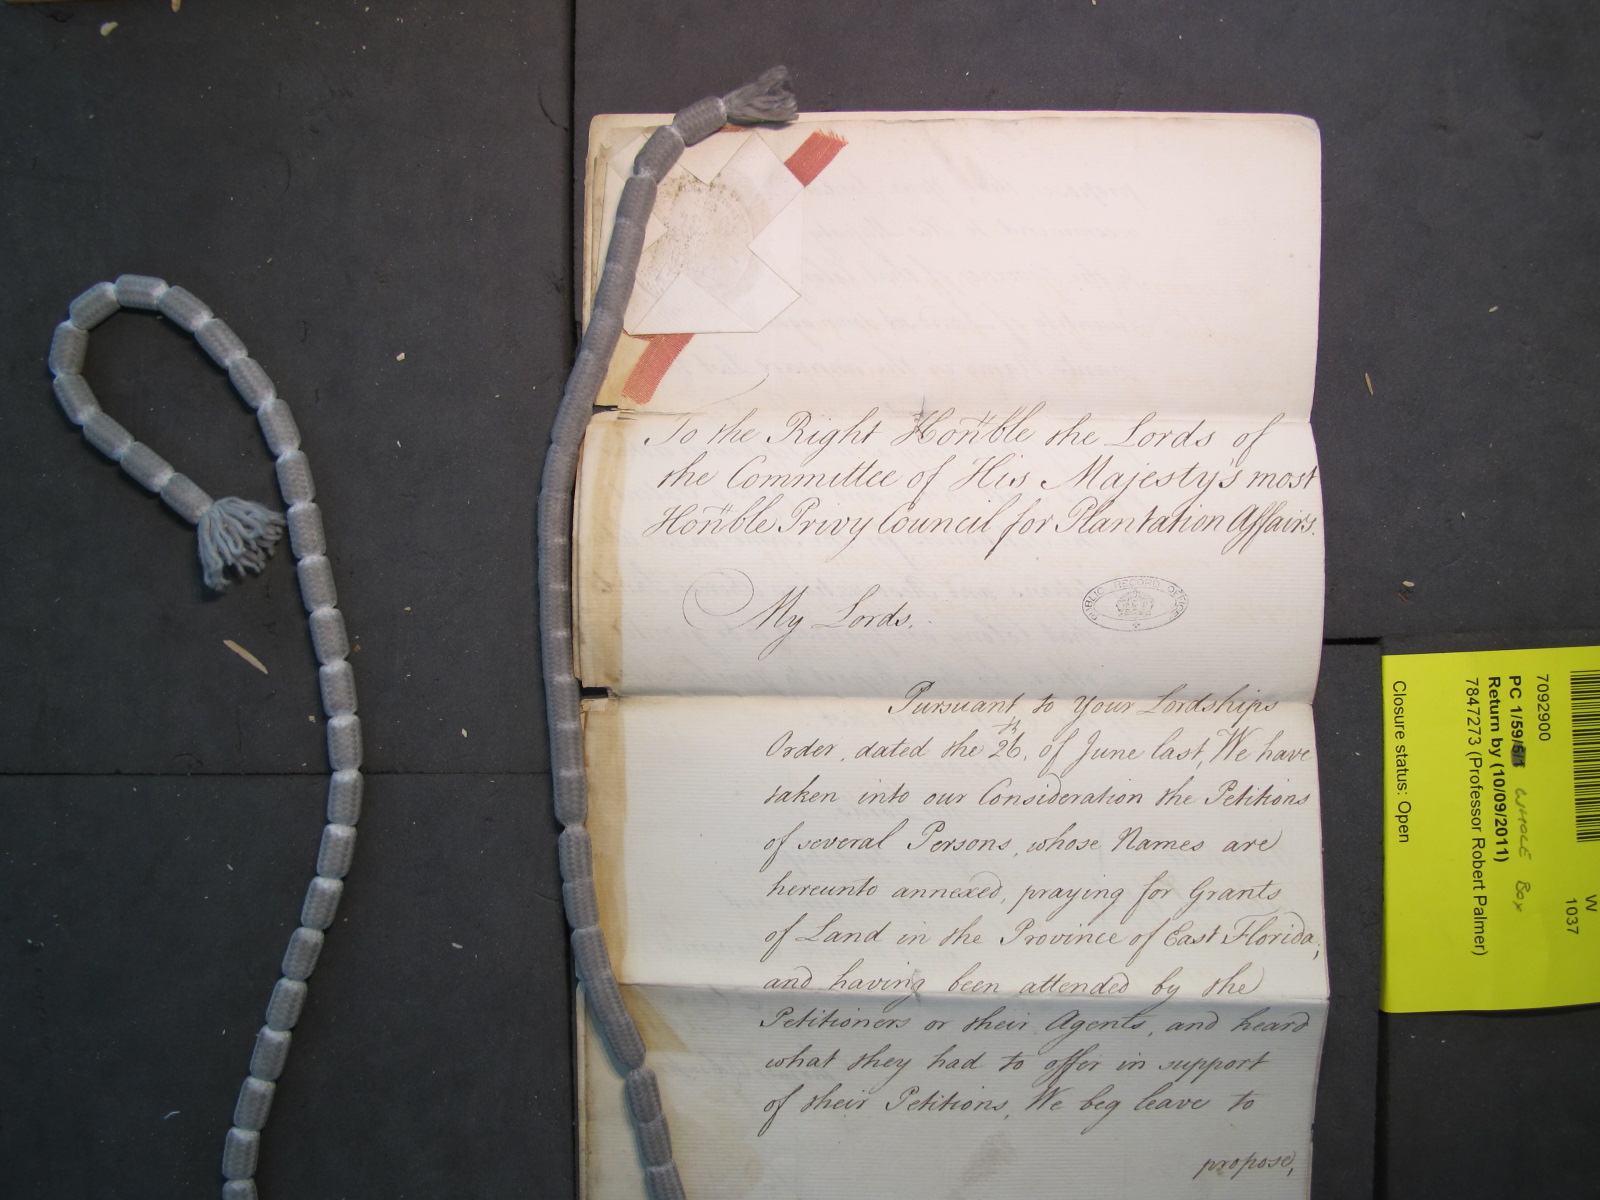 To the Right Hon̄ble the Lords of
the Committee of His Majesty's most
Hon̄ble Privy Council for Plantation Affairs.
My Lords.
PUBLIC RECORD OFFICE
Pursuant, to Your Lordships
Order, dated the 26th. of June last, We have
taken into our Consideration the Petitions
of several Persons, whose Names are
hereunto annexed, praying for Grants
of Land in the Province of East Florida;
and having been attended by the
Petitioners or their Agents, and heard
what they had to offer in support
of their Petitions, We beg leave to
propose,
W
1037
7092900
PC 1/59/5/1 WHOLE BOX
Return by (10/09/2011)
7847273 (Professor Robert Palmer)
Closure status: Open